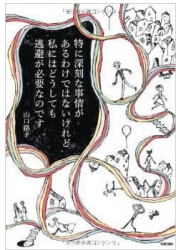 特に深刻な事情が
あるわけではないけれど
私にはどうしても
逃避が必要なのです
山口路子